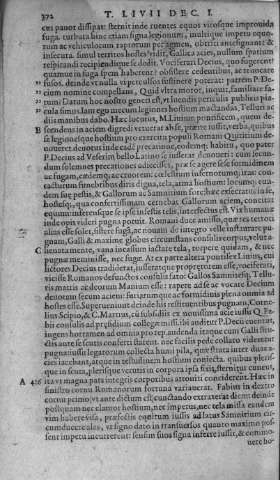 372 T. LIVII DEC. I.
eus pauor dissipat: sternit inde ruentes equos virosque improuida
fuga. turbata hinc etiam signa legionum, multique impetu equo-
rum ac vehiculorum raptorum per agmen, obtriti antesignani: &
insecuta, simul territos hostes vidit, Gallica acies, nullum spatium
respirandi recipiendique se dedit. Vociferari Decius, quo fugerent?
quamue in fuga spem haberent? obsistere cedentibus, ac reuocare
fusos. deinde vt nulla vi perculsos sustinere poterat, patrem P. De-
cium nomine compellans, Quid vltra moror, inquit, familiare fa-
tum? Datum hoc nostro generi est, vt luendis periculis publicis pia-
cula simus. iam ego mecum hostium legiones mactandas Telluri ac
diis manibus dabo. Hæc locutus, M. Liuium pontificem, quem de-
B scendens in aciem digredi vetuerat ab se, præire iussit verba, quibus
se legionesque hostium pro exercitu populi Romani Quiritium de-
uoueret. deuotus inde eadem precatione, eodemque habitu, quo pater
P. Decius ad Veserim bello Latino se iusserat deuoueri: cum secun-
dum solennes precationes adiecisset, præ se agere sese formidinem
ac fugam, cædemque ac cruorem: cœlestium, infernorumque iras: con-
tacturum funebribus diris signa, tela, arma hostium: locumque eun-
dem suæ pestis, & Gallorum ac Samnitium fore: hæc exsecratus in se,
hostesque, qua confertissimam cernebat Gallorum aciem, concitat
equum: inferensque se ipse infestis telis, interfectus est. Vix humanæ
inde opis videri pugna potuit. Romani duce amisso, quæ res terrori
alia esse solet, sistere fugam, ac nouam de integro velle instaurare pu-
gnam. Galli & maxime globus circumstans consulis corpus, velut a-
C lienata mente, vana incassum iactare tela, torpere quidam, & nec
pugnæ meminisse, nec fugæ. At ex parte altera pontifex Liuius, cui
lictores Decius tradiderat, iusseratque proprætorem esse, vociferari,
vicisse Romanos defunctos consulis fato: Gallos Samnitesque Tellu-
ris matris ac deorum Manium esse: rapere ad se ac vocare Decium
deuotam secum aciem: furiarumque ac formidinis plena omnia ad
hostes esse. Superueniunt deinde his restituentibus pugnam, L. Corne-
lius Scipio, & C. Martius, cum subsidiis ex nouissima acie iussu Q. Fa-
bii consulis ad præsidium collegæ missi. ibi auditur P. Decii euentus,
ingens hortamen ad omnia pro rep. audenda. itaque cum Galli stru-
ctis ante se scutis conferti starent, nec facilis pede collato videretur
pugna: iussu legatorum collecta humi pila, quæ strata inter duas a-
cies iacebant, atque in testudinem hostium coniecta. quibus pleris-
que in scuta, plerisque verutis in corpora ipsa fixis, sternitur cuneus,
A 426 ita vt magna pars integris corporibus attoniti conciderent. Hæc in
sinistro cornu Romanorum fortuna variauerat. Fabius in dextro
cornu primo, vt ante dictum est, cunctando extraxerat diem: deinde
postquam nec clamor hostium, nec impetus, nec tela missa eandem
vim habere visa, præfectis equitum iussis ad latus Samnitium cir-
cumducere alas, vt signo dato in transuersos quanto maximo pos-
sent impetu incurrerent: sensim suos signa inferre iussit, & commo-
uere ho-